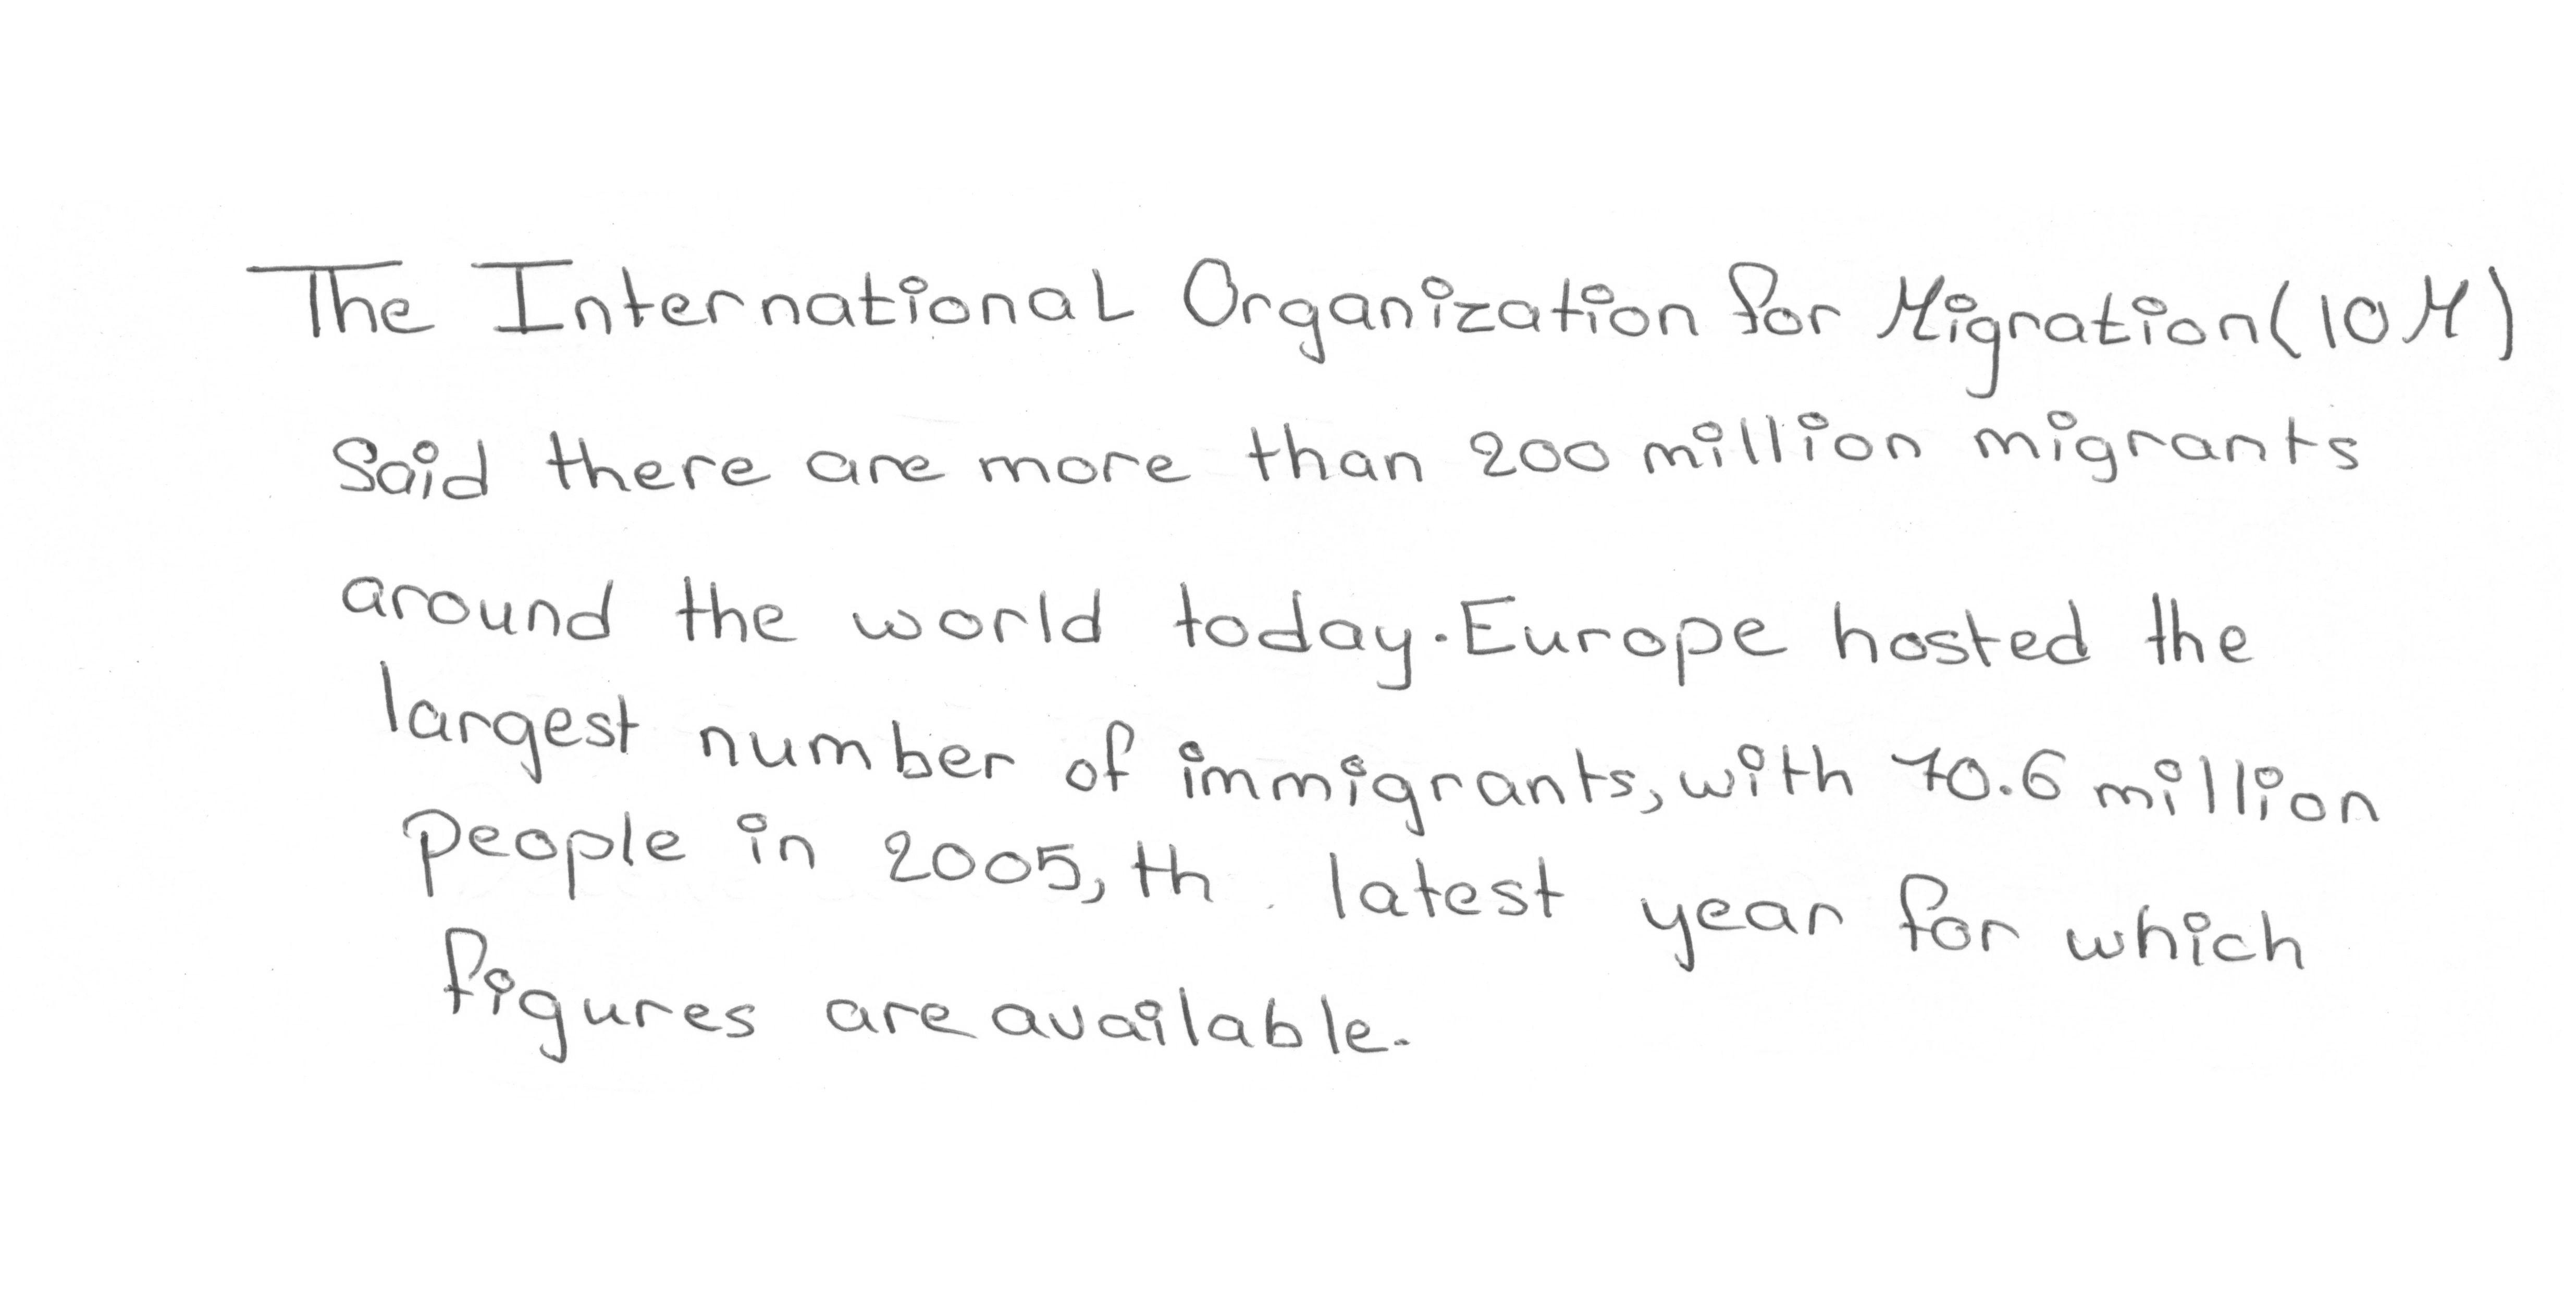 The International Organization for Migration (IOM)
Said there are more than 200 million migrants
around the world today. Europe hosted the
largest number of immigrants, with 70.6 million
people in 2005, th. latest year for which
figures are available.